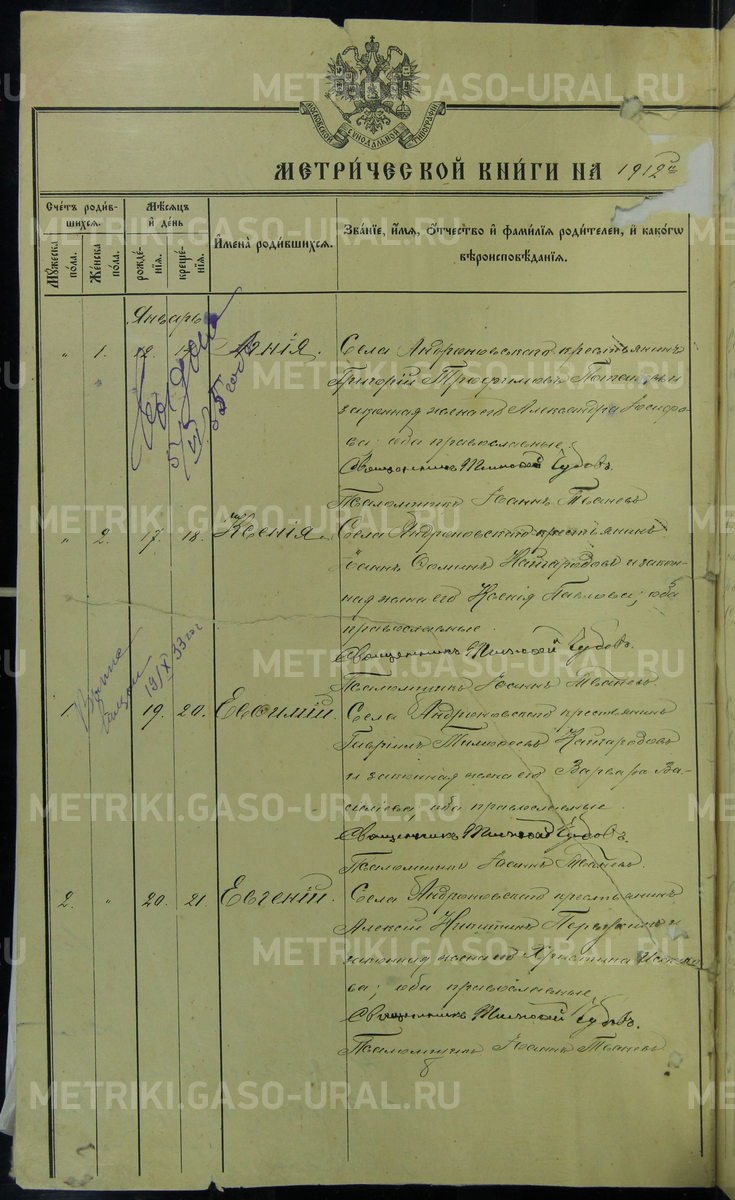 МОСКОВСКОЙ СѴНОДАЛЬНОЙ ТИПОГРАФІИ
МЕТРИ́ЧЕСКОЙ КНИ́ГИ НА 1912й
Счетъ роди́в-
шихся.
Мꙋжеска
по́ла.
Же́нска
по́ла.
Мѣсяцъ
и҆ де́нь
рожде́-
нїя.
креще́-
нїя.
И҆мена̀ роди́вшихся.
Зва́нїе, и҆́мя, ѻ҆́тчество и҆ фами́лїя роди́телей, и҆ како́гѡ
вѣроисповѣ́данїя.
Январь
" 1. 12. Агнія. Села Андроновскаго крестьянинъ
Григорій Трофимовъ и
законная жена его Александра Іосифо-
ва; оба православные.
Священникъ Чудовъ.
Псаломщикъ Іоаннъ
" 2. 17. 18. Ксенія. Села Андроновскаго крестьянинъ
Іоаннъ Найгородовъ и закон-
ная жена его Ксенія Павлова; оба
православные.
Священникъ Чудовъ.
Псаломщикъ Іоаннъ
19/X 33 г
1. " 19. 20. Евѳимій. Села Андроновскаго крестьянинъ
Гавріилъ Тимофеевъ Найгородовъ
и законная жена его Варвара Ва-
сильева, оба православные.
Священникъ Чудовъ.
Псаломщикъ Іоаннъ
2. " 20. 21. Евгеній. Села Андроновскаго крестьянинъ
Алексій Никитинъ и
законная жена его Христина
ва; оба православные.
Священникъ Чудовъ.
Псаломщикъ Іоаннъ
METRIKI.GASO-URAL.RU